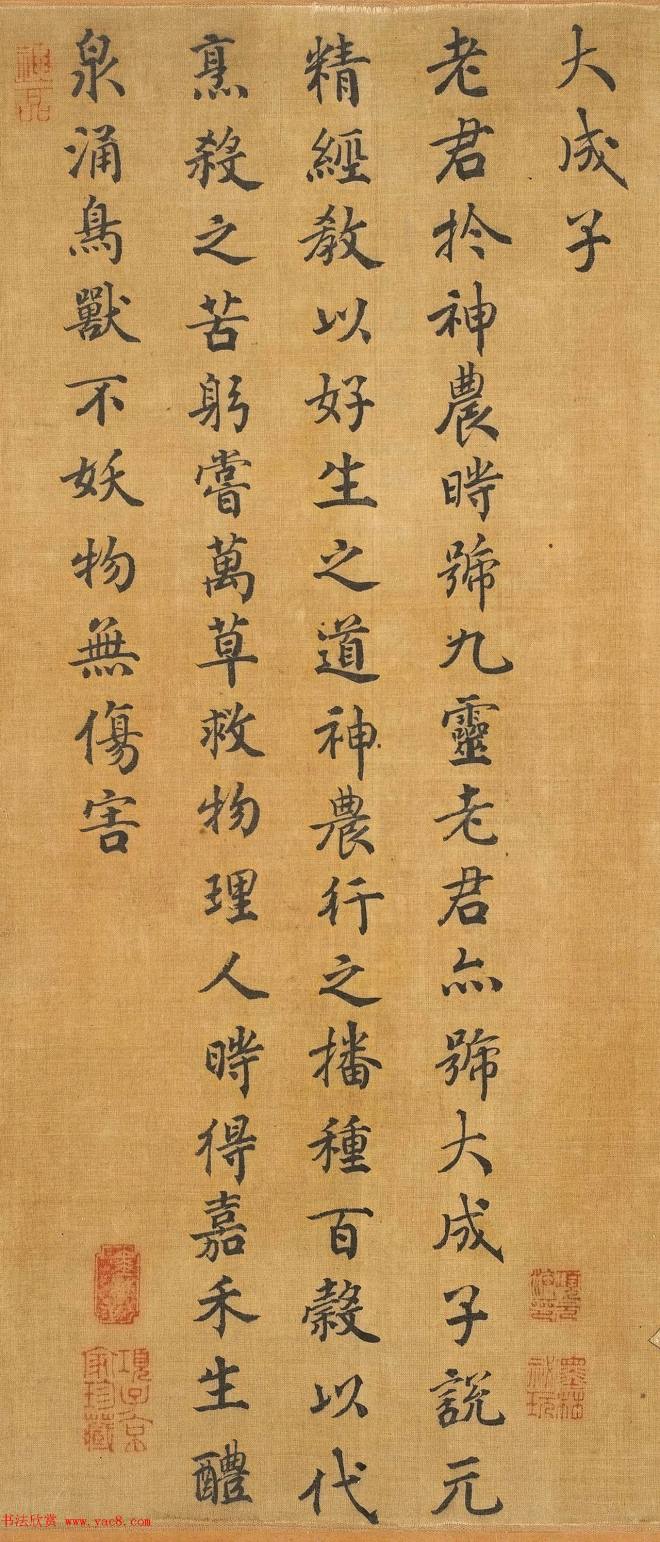 大成子
老君扵神農時號九靈老君亦號大成子説元
精經教以好生之道神農行之播種百穀以代
烹殺之苦躬嘗萬草救物理人時得嘉禾生醴
泉涌鳥獸不妖物無傷害
神品
項子京家珍藏
书法欣赏 www.yac8.com